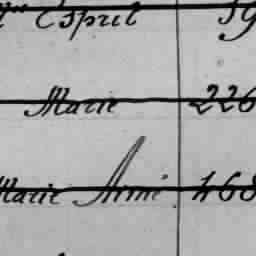 Esprit 59
Marie 226
Marie Aimé 468